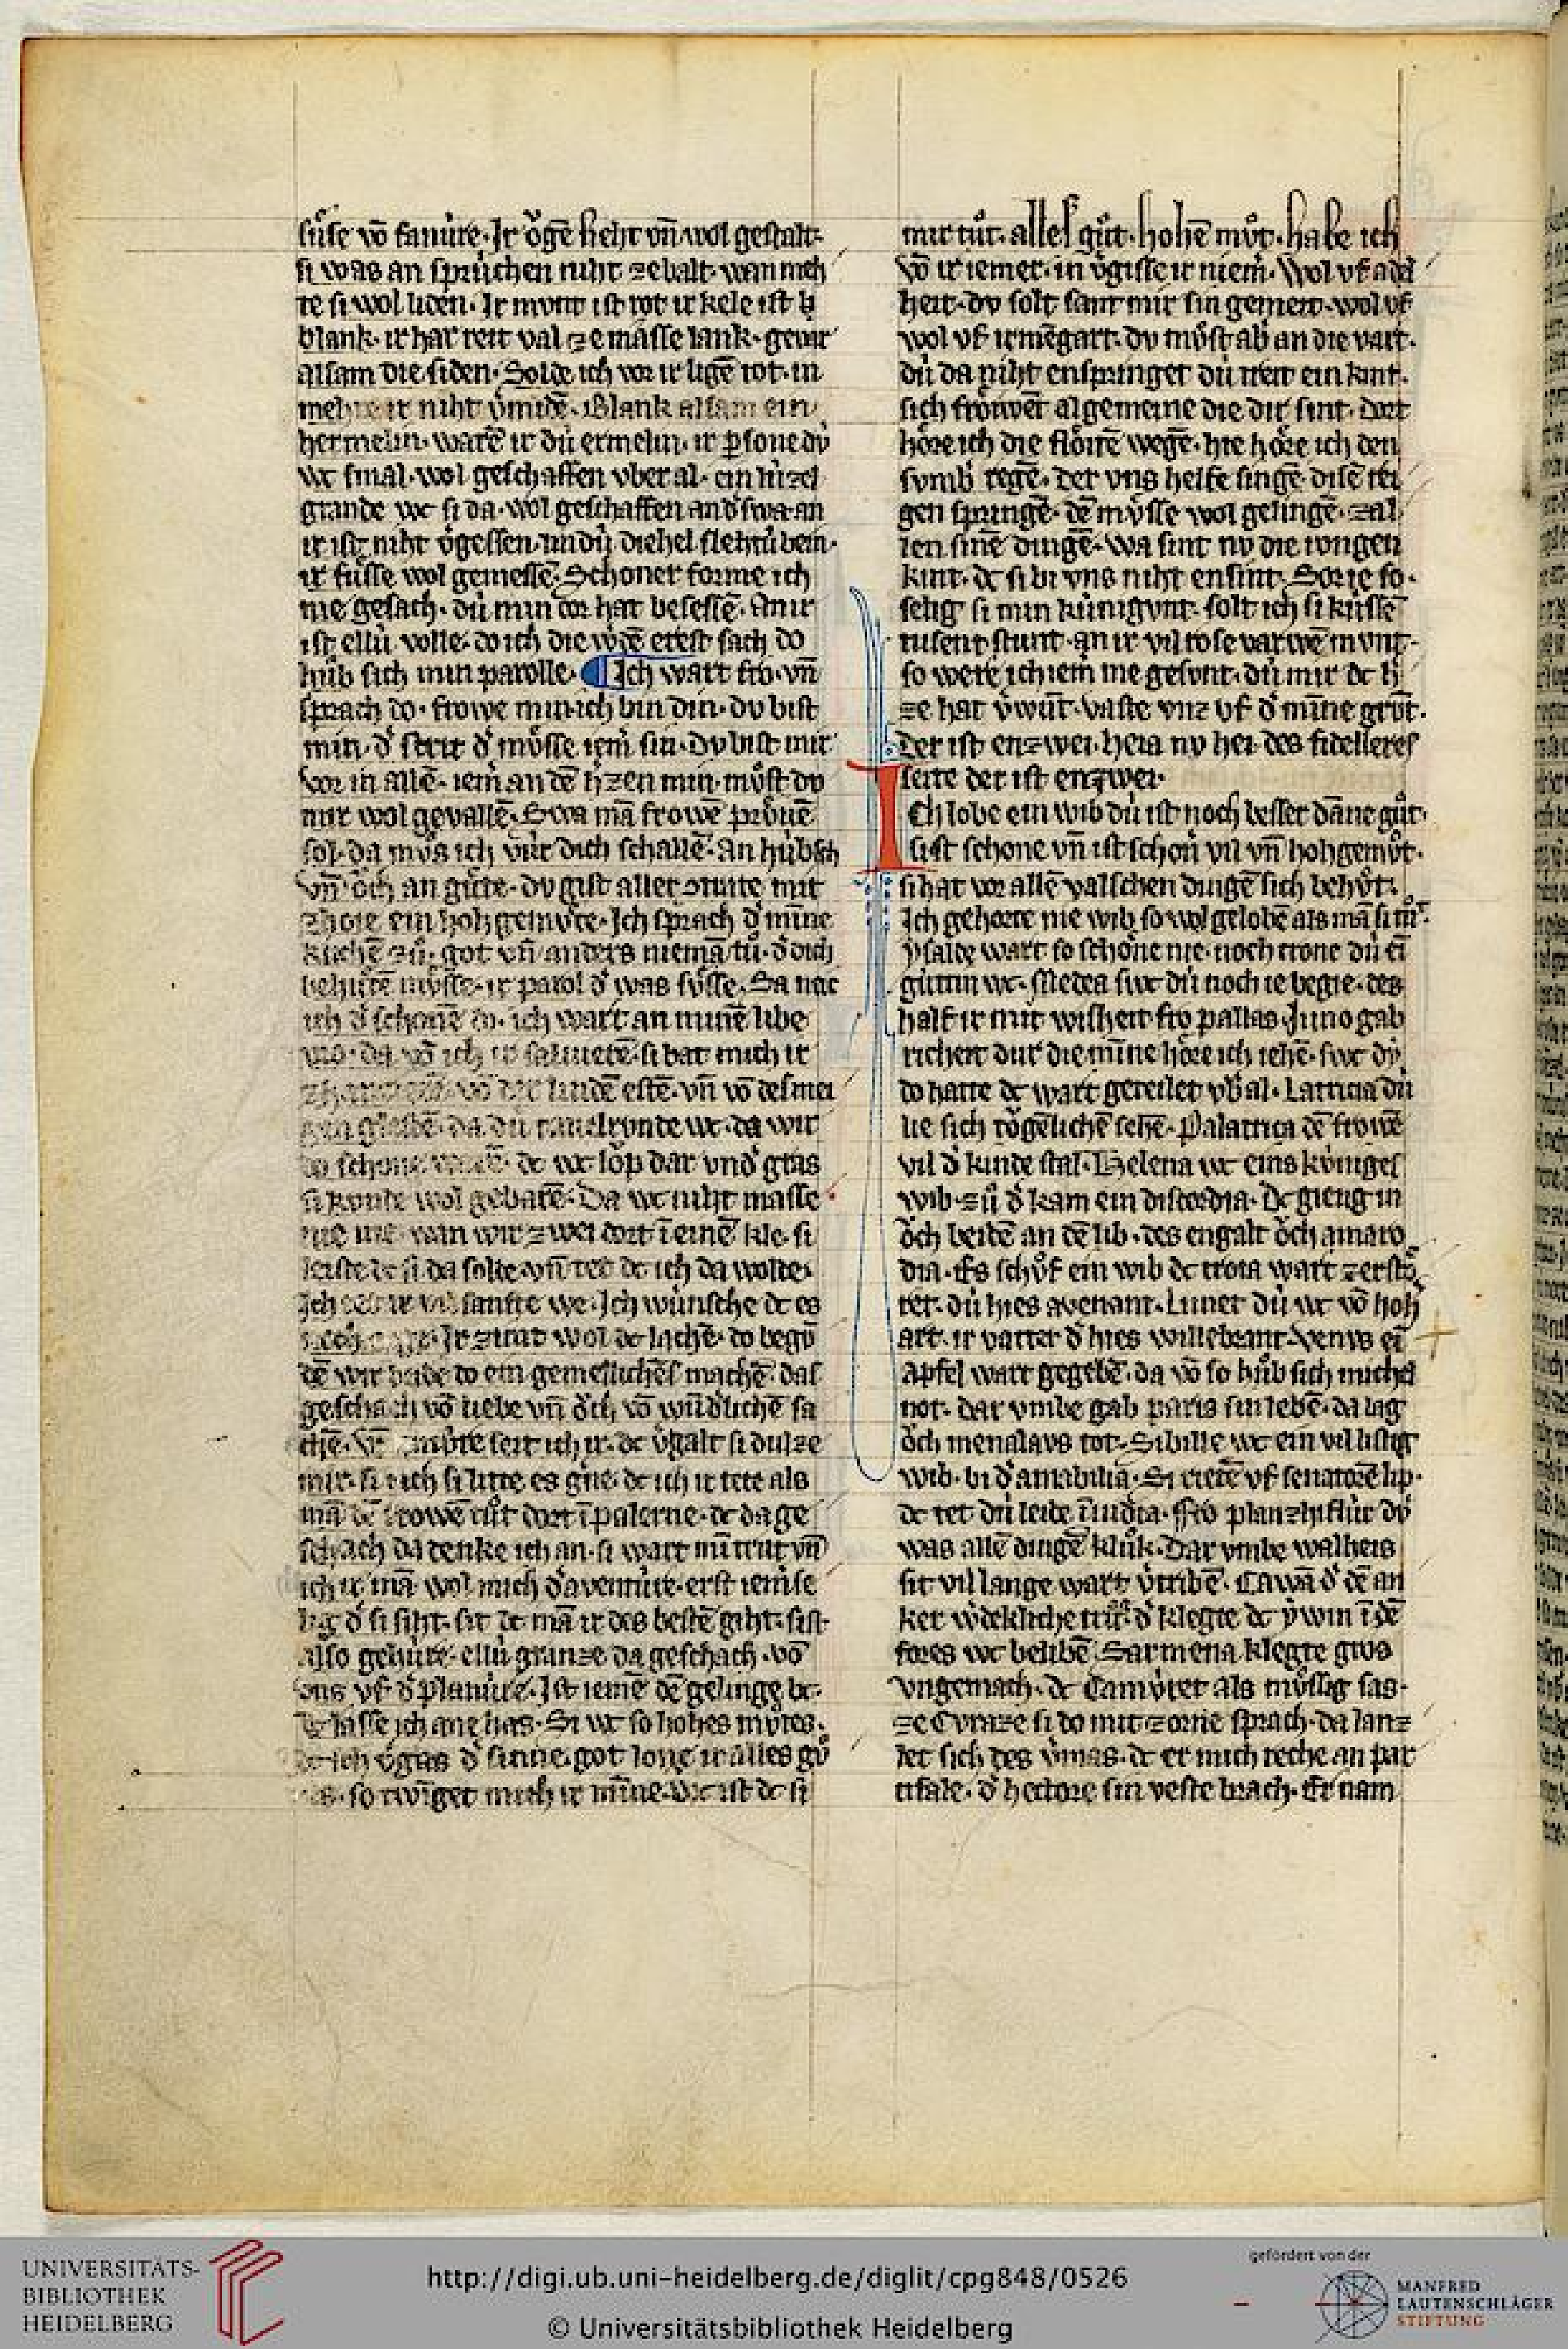 sůſe võ fanv́re. Ir ǒgẽ lieht vñ wol geſtalt.
ſi was an ſprúchen niht ze balt. wan meh
te ſi wol liden. Ir mvnt iſt rot ir kele iſt
blank. ir har reit val ze mâſſe lank. gevar
alſam die ſiden. Solde ich vor ir ligẽ tot. in
mehte ir niht v̾midẽ. Blank alſam ein
hermelin. warẽ ir dú ermelin. ir p̲ſone dú
wc ſmal. wol geſchaffen vber al. ein lúzel
grande wc ſi da. wol geſchaffen and̾ſwa an
ir iſt niht v̾geſſen. lindú diehel ſlehtú bein.
ir fúſſe wol gemeſſẽ. Schoner forme ich
nie geſach. dú min cor hat beſeſſẽ. an ir
iſt ellú volle. do ich die w̾dẽ ereſt ſach do
hůb ſich min parolle. Ich wart fro. vñ
ſprach do. frowe min. ich bin din. dv biſt
min. d̾ ſtrit d̾ mv̊ſſe iem̾ ſin. Dv biſt mir
vor in allẽ. iem̾ an dẽ h̾zen min. mv̊ſt dv
mir wol gevallẽ. Swa mã frowẽ prv̊uẽ
ſol. da mv̊s ich vúr dich ſchallẽ. an húbſch
vñ ǒch an gůte. dv giſt aller ‍ mit
zhoie ein hoh gemv̊te. Ich ſprach d̾ mĩne
klichẽ zů. got vñ anders niemã tů. d̾ dich
behútẽ mv̊ſſe. ir parol d̾ was ſv̊ſſe. Sa neic
ich d̾ ſchonẽ do. ich wart an minẽ libe
vro. da võ ir ſaluierẽ. ſi bat mich ir
võ der lindẽ eſtẽ. vñ võ des mei
gen gleſtẽ. da dú tauelrvnde wc. da wir
do ſchone. dc wc lǒp dar vnd̾ gras
ſi konde wol gebarẽ. Da wc niht maſſe
nie me. wan wir zwei dort ĩ einẽ kle. ſi
leiſte dc ſi da ſolde. vñ tet dc ich da wolte.
Ich tet ir vil ſanfte we. Ich wúnſche dc es
Ir zimt wol dc lachẽ. do begv̄
dẽ wir beide do ein gemellichẽs machẽ. das
geſchach võ liebe vñ ǒch võ wũd̾lichẽ ſa
chẽ. ſeit ich ir. dc v̾galt ſi dulze
mir. ſi iich ſi litte es g̾ne. dc ich ir tete als
mã dẽ frowẽ tůt dort ĩ palerne. dc da ge
ſchach da denke ich an. ſi wart mĩ trut vñ
ich ir mã. wol mich d̾ aventúre. erſt iem̾ ſe
lig d̾ ſi ſiht. ſit dc mã ir des beſtẽ giht. ſiſt
alſo gehúre. ellú granze da geſchach. võ
vns vf d̾ planúre. Iſt iemẽ dẽ gelinge bc.
dc laſſe ich ane has. Si wc ſo hohes mv̊tes.
dc ich v̾gas d̾ ſinne. got lone ir alles gů
tes. ſo twĩget mich ir mĩne. wc iſt dc ſi
mir tůt. alles gůt. hohẽ mv̊t. habe ich
võ ir iemer. in v̾giſſe ir niem̾. Wol vf adel
heit. dv ſolt ſant mir ſin gemeit. wol vf
wol vf irmẽgart. dv mv̊ſt ab̾ an die vart.
dú da niht enſpringet dú treit ein kint.
ſich frǒwẽt algemeine die dir ſint. dort
hôre ich die flôitẽ wegẽ. hie hôre ich den
ſvmb̾ regẽ. der vns helfe ſingẽ. diſẽ rei
gen ſpringẽ. dẽ mv̊ſſe wol gelingẽ. zal
len ſinẽ dingẽ. Wa ſint nv die iongen
kint. dc ſi bi vns niht enſint. So rie ſo.
ſelig ſi min kúnigvnt. ſolt ich ſi kúſſẽ
tuſent ſtunt. an ir vil roſe varwẽ mvnt.
ſo were ich iem̾ me geſvnt. dú mir dc h̾
ze hat v̾wũt. vaſte vnz vf d̾ mĩne grvt.
Der iſt enzwei. heia nv hei. des fidelleres
ſeite der iſt enzwei.
Ich lobe ein wib dú iſt noch beſſer dãne gůt.
ſiſt ſchone vñ iſt ſchon̾ vil vñ hohgemv̊t.
ſi hat vor allẽ valſchen dingẽ ſich behv̊t.
Ich gehorte nie wib ſo wol gelobẽ als mã ſi tůt.
yſalde wart ſo ſchône nie. noch trone dú eĩ
gúttin wc. Medea ſwc dú noch ie begie. des
half ir mit wiſheit fro pallas. Juno gab
richeit dur die mĩne hôre ich iehẽ. ſwc dv̊
do hatte dc wart geteilet vb̾ al. Lattricia dú
lie ſich tǒgẽlichẽ ſehẽ. Palatrica dẽ frowẽ
vil d̾ kinde ſtal. Helena wc eins kv́niges
wib. zů d̾ kam ein diſcordia. dc gieng in
ǒch beidẽ an dẽ lib. des engalt ǒch amaro
dia. Es ſchůf ein wib dc troia wart zerſtô
ret. dú hies avenant. Lunet dú wc võ hoh̾
art. ir vatter d̾ hies willebrant. Venvs eĩ
apfel wart gegebẽ. da võ ſo hůb ſich michel
not. dar vmbe gab paris ſin lebẽ. da lag
ǒch menalavs tot. Sibille wc ein vil liſtig
wib. bi d̾ amabilia. Si ‍ vf ſenatorẽ lip.
dc tet dú leide ĩuidia. ffro planzhiflúr dv́
was allẽ dingẽ klůk. Dar vmbe walheis
ſit vil lange wart v̾tribẽ. Cawã d̾ dẽ an
ker ‍ trůg d̾ klegte dc ywin ĩ dẽ
fores wc belibẽ. Sarmena klegte gros
vngemach. dc Camv̊ret als mv̊ſſig ſas.
ze Cvraze ſi do mit zorne ſprach. da lanz
let ſich des v̾mas. dc er mich reche an par
cifale. d̾ hectore ſin veſte brach. Er nam
UNIVERSITÄTS-
BIBLIOTHEK
HEIDELBERG
http://digi.ub.uni-heidelberg.de/diglit/cpg848/0526
© Universitätsbibliothek Heidelberg
gefördert von der
MANFRED
LAUTENSCHLÄGER
STIFTUNG